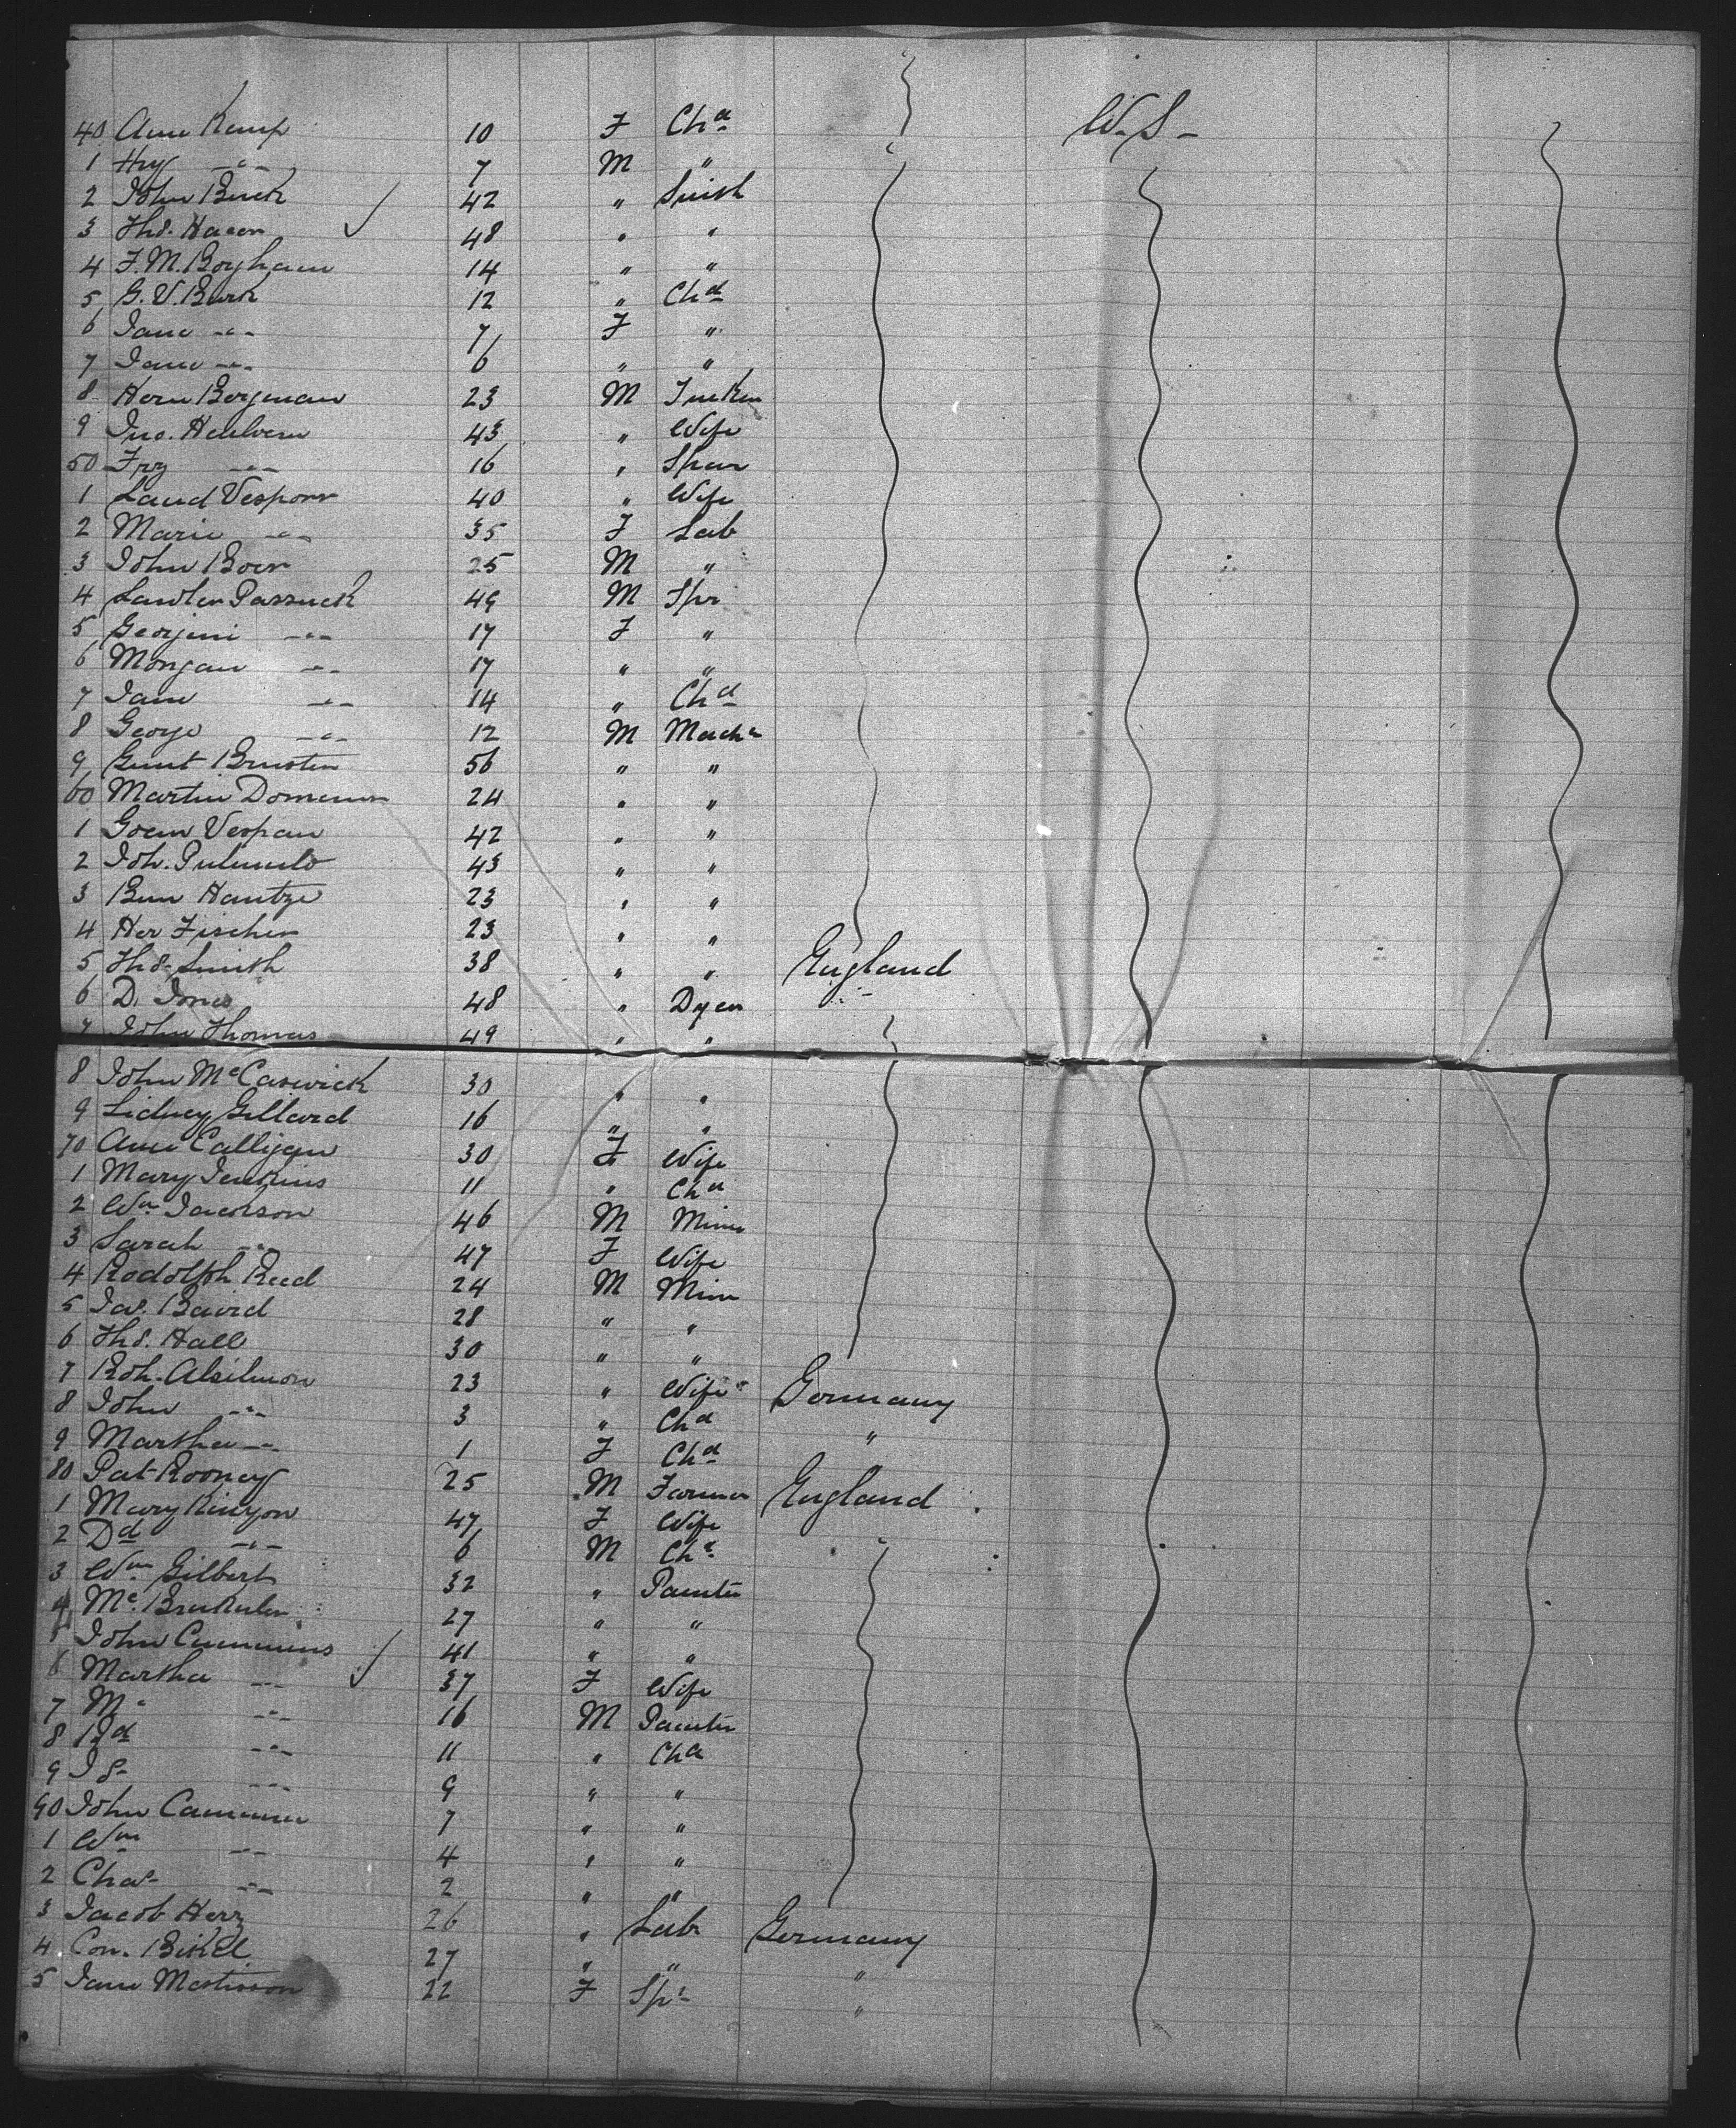 40 Ann Kemp 10 F Chd W. S.
1 Hy " 7 M "
2 John Buck 42 " Smith
3 Thos. Hacon 48 " "
4 F. M. Boyham 14 " "
5 G. V. Burk 12 " Chd
6 Jane " 7 F "
7 Jane " 6 " "
8 Herm Bergman 23 M
9 Jno. 43 " Wife
50 " 16 "
1 40 " Wife
2 Marie " 35 F Lab
3 John Boer 25 M "
4 49 M Spr
5 Georjini " 17 F "
6 Morgan " 17 " "
7 Jane " 14 " Chd
8 George " 12 M Mach
9 56 " "
60 Martin 24 " "
1 42 " "
2 Joh. 43 " "
3 Ben Hantze 23 " "
4 Her Fischer 23 " "
5 Thos Smith 38 " " England
6 D. Jones 48 " Dyer
7 John Thomas 49 " "
8 John McCaswick 30 " "
9 Sidney Gillard 16 " "
70 Ann Calligan 30 F Wife
1 Mary Jenkins 11 " Chd
2 Wm Jackson 46 M Miner
3 Sarah " 47 F Wife
4 Rodolph Reed 24 M Miner
5 Jas. Baird 28 " "
6 Thos. Hall 30 " "
7 Roh. Alsilmon 23 " Wife Germany
8 John " 3 " Chd "
9 Martha " 1 F Chd "
80 Pat Rooney 25 M Farmer England
1 Mary Kinyon 47 F Wife
2 Dd " 6 M Chd
3 Wm Gilbert 32 " Painter
4 27 " "
5 John Cummins 41 " "
6 Martha " 37 F Wife
7 " 16 M Painter
8 " 11 " Chd
9 " 9 " "
90 John 7 " "
1 Wm " 4 " "
2 Chas " 2 " "
3 Jacob Herz 26 " Lab Germany
4 Con. Bikel 27 " " "
5 Jane 22 F Spr "